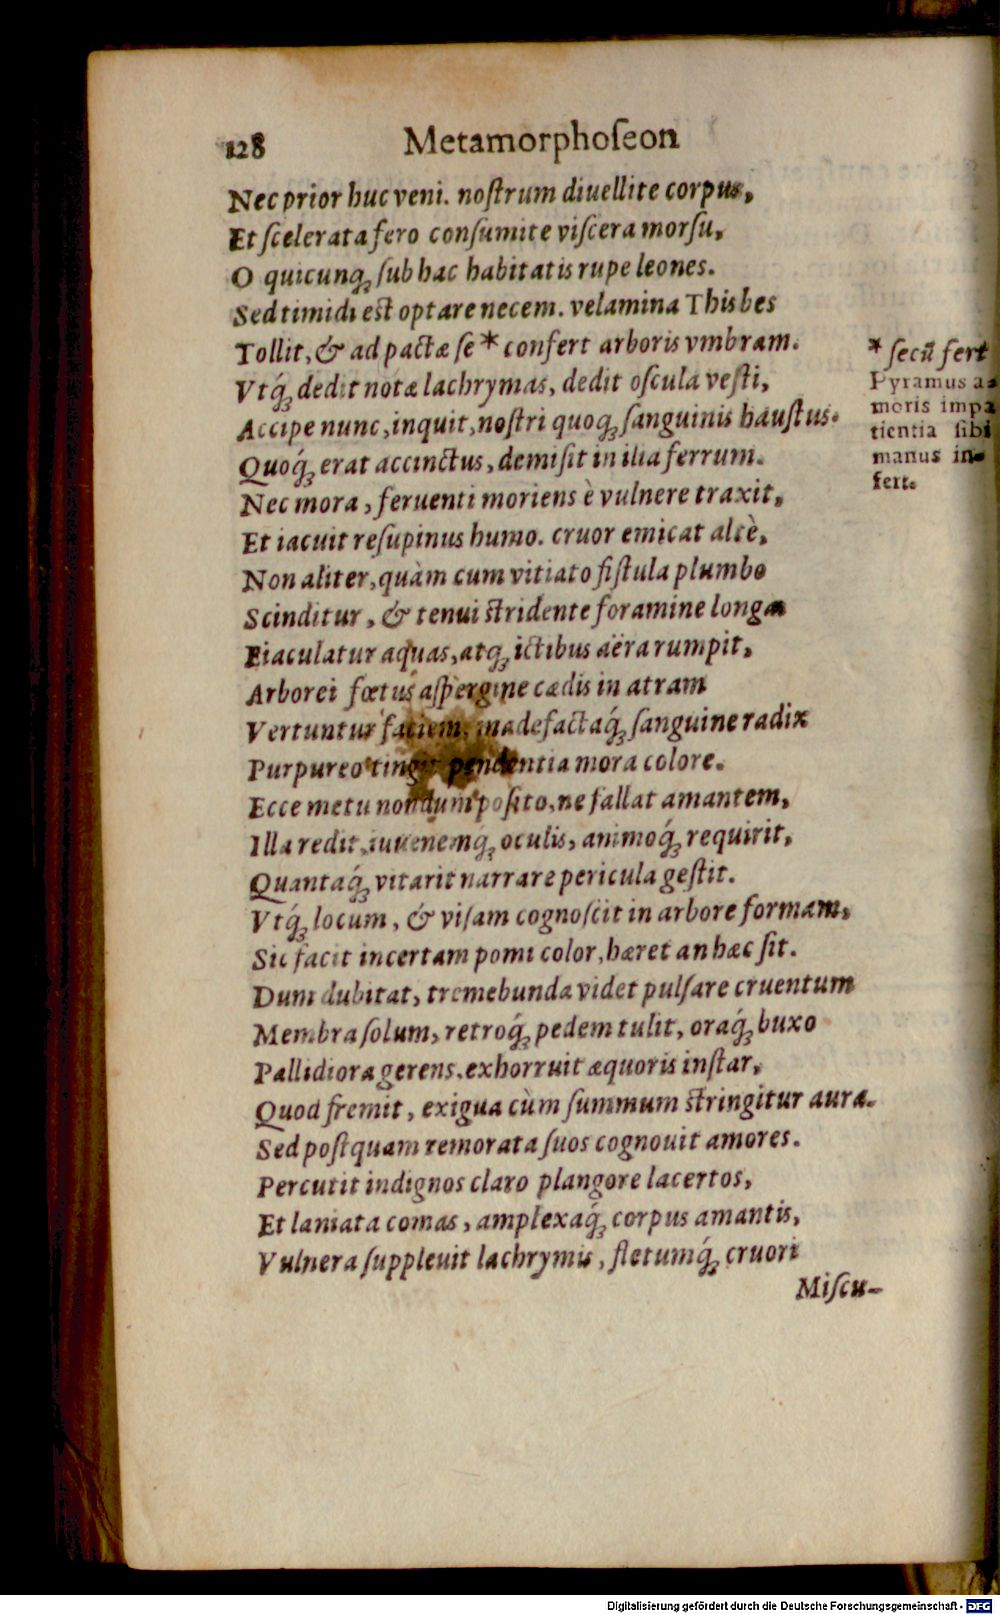 128 Metamorphoſeon
Nec prior huc veni. noſtrum diuellite corpus,
Et ſcelerata fero conſumite viſcera morſu,
O quicunqꝫ ſub hac habitatis rupe leones.
Sed timidi est optare necem. velamina Thisbes
Tollit, & ad pactæ ſe * confert arboris vmbram.
Vtqꝫ́ dedit notæ lachrymas, dedit oſcula veſti,
Accipe nunc, inquit, noſtri quoqꝫ ſanguinis hauſtus.
Quoqꝫ́ erat accinctus, demiſit in ilia ferrum.
Nec mora, feruenti moriens è vulnere traxit,
Et iacuit reſupinus humo. cruor emicat altè,
Non aliter, quàm cum vitiato fiſtula plumbo
Scinditur, & tenui stridente foramine longæ
Eiaculatur aquas, atqꝫ ictibus aëra rumpit,
Arborei fœtus aſpergine cædis in atram
Vertuntur faciem, madefactaqꝫ́ ſanguine radix
Purpureo tingit pendentia mora colore.
Ecce metu nondum poſito, ne fallat amantem,
Illa redit, iuuenemqꝫ́ oculis, animoqꝫ́ requirit,
Quantaqꝫ́ vitarit narrare pericula geſtit.
Vtqꝫ́ locum, & viſam cognoſcit in arbore formam,
Sic facit incertam pomi color, hæret an hæc ſit.
Dum dubitat, tremebunda videt pulſare cruentum
Membra ſolum, retroqꝫ́ pedem tulit, oraqꝫ́ buxo
Pallidiora gerens, exhorruit æquoris inſtar,
Quod fremit, exigua cùm ſummum stringitur aura.
Sed poſtquam remorata ſuos cognouit amores.
Percutit indignos claro plangore lacertos,
Et laniata comas, amplexaqꝫ́ corpus amantis,
Vulnera ſuppleuit lachrymis, fletumqꝫ́ cruori
Miſcu-
* ſecū fert
Pyramus a-
moris impa
tientia ſibi
manus in-
fert.
Digitalisierung gefördert durch die Deutsche Forschungsgemeinschaft - DFG